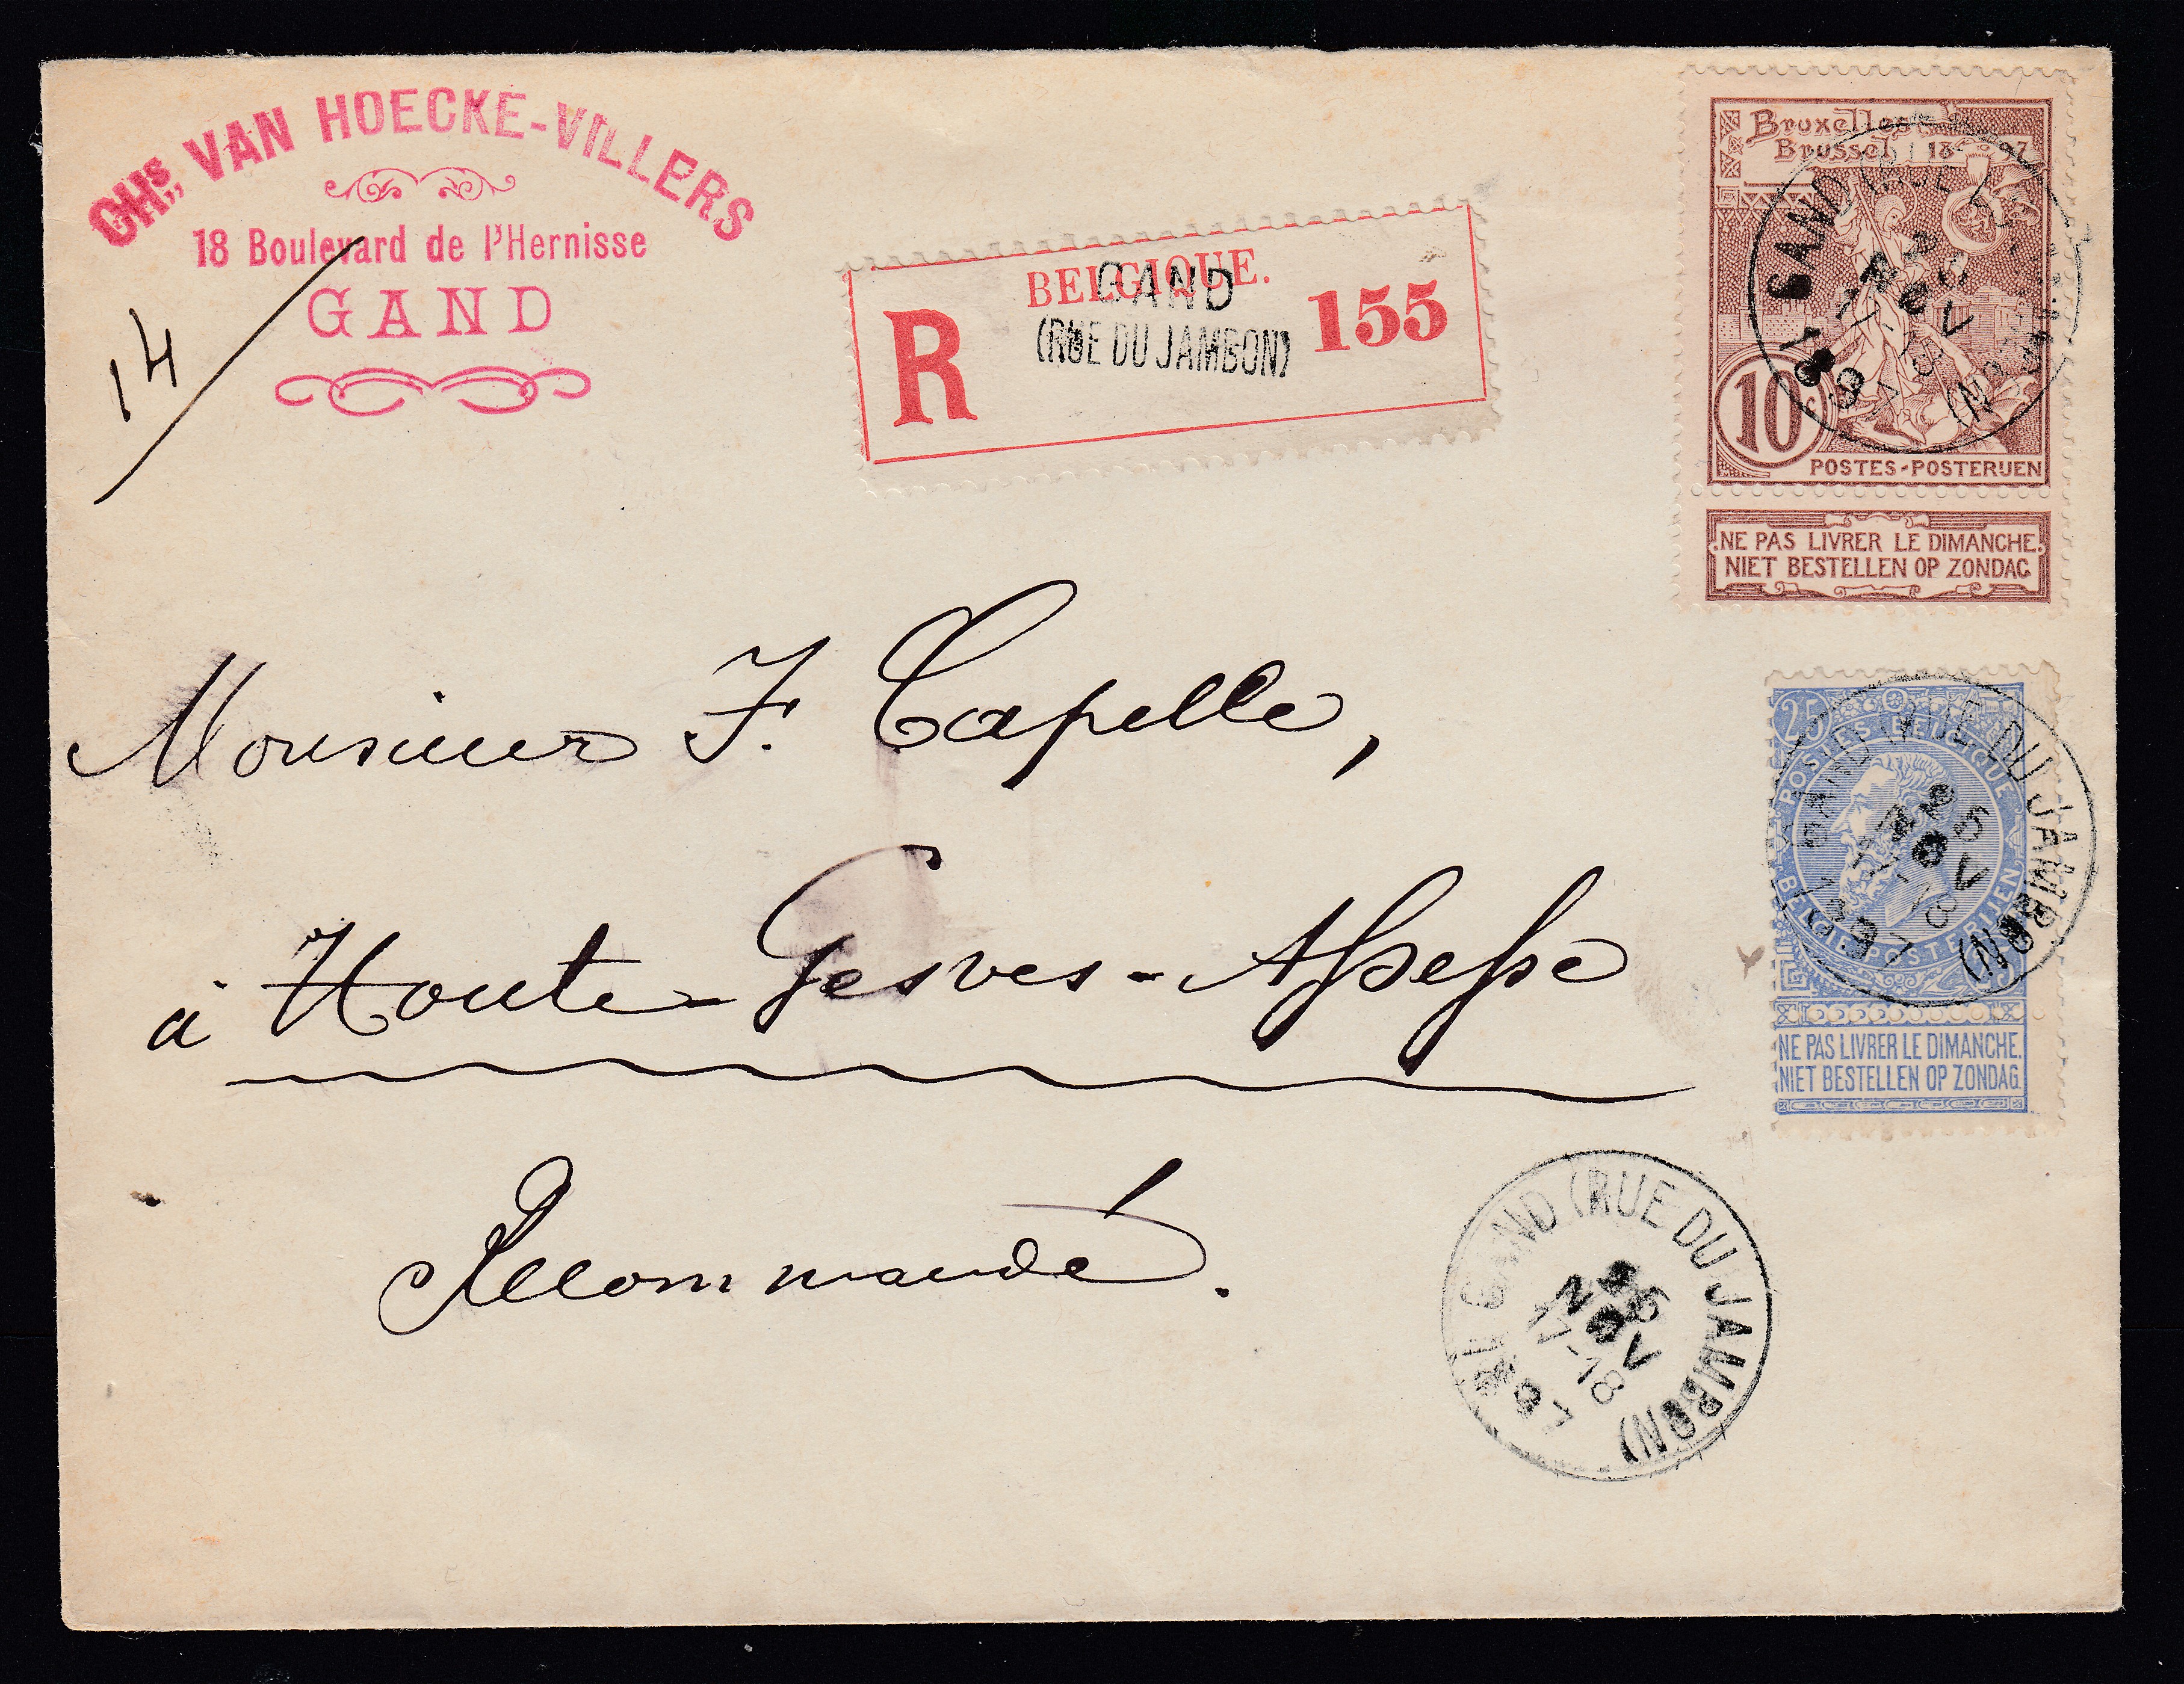 CHs,, VAN HOECKE-VILLERS
18 Boulevard de l'Hernisse
GAND
14
BELGIQUE.
GAND
(RUE DU JAMBON)
R
155
Bruxelles
Brussel 1897
10c
POSTES-POSTERIJEN
NE PAS LIVRER LE DIMANCHE.
NIET BESTELLEN OP ZONDAG
GAND (RUE DU JAMBON)
25 NOV
17-18
97
Monsieur F. Capelle,
à Haute-Gesves-Assesse
Recommandé.
25
POSTES BELGIQUE
BELGIE POSTERIJEN
NE PAS LIVRER LE DIMANCHE.
NIET BESTELLEN OP ZONDAG.
GAND (RUE DU JAMBON)
25
NOV
17-18
1897
GAND (RUE DU JAMBON)
25
NOV
17-18
1897